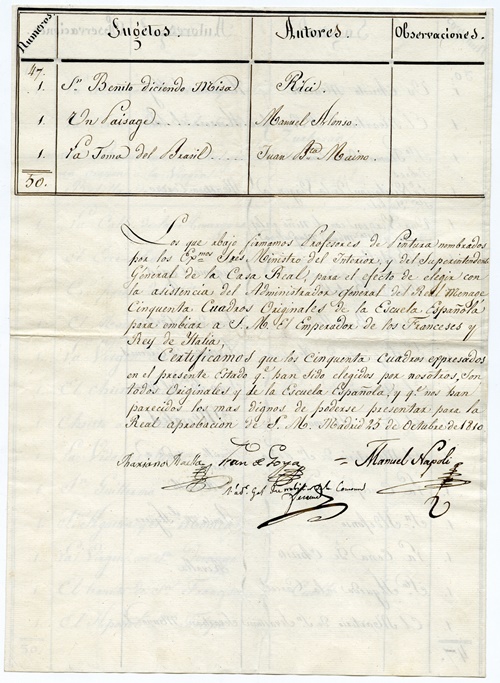 Numeros. Sugetos Autores. Observaciones.
47.
1. Sn. Benito diciendo Misa Rici
1. Un Paisage Manuel Alonso.
1. La Toma del Brasil Juan Bta. Maino.
50.
Los que abajo firmamos Profesores de Pintura nombrados
por los Exmos. Sres. Ministro del Interior, y del Superintendente
General de la Casa Real, para el efecto de elegir con
la asistencia del Administrador General del Real Menage
Cinquenta Cuadros Originales de la Escuela Española
para embiar a S. M. El Emperador de los Franceses y
Rey de Italia,
Certificamos que los Cinquenta Cuadros expresados
en el presente Estado qe. han sido elegidos por nosotros, son
todos Originales y de la Escuela Española, y qe. nos han
parecidos los mas dignos de poderse presentar para la
Real aprobacion de S. M. Madrid 25 de Octubre de 1810.
Mariano Maella Fran. de Goya = Manuel Napoli